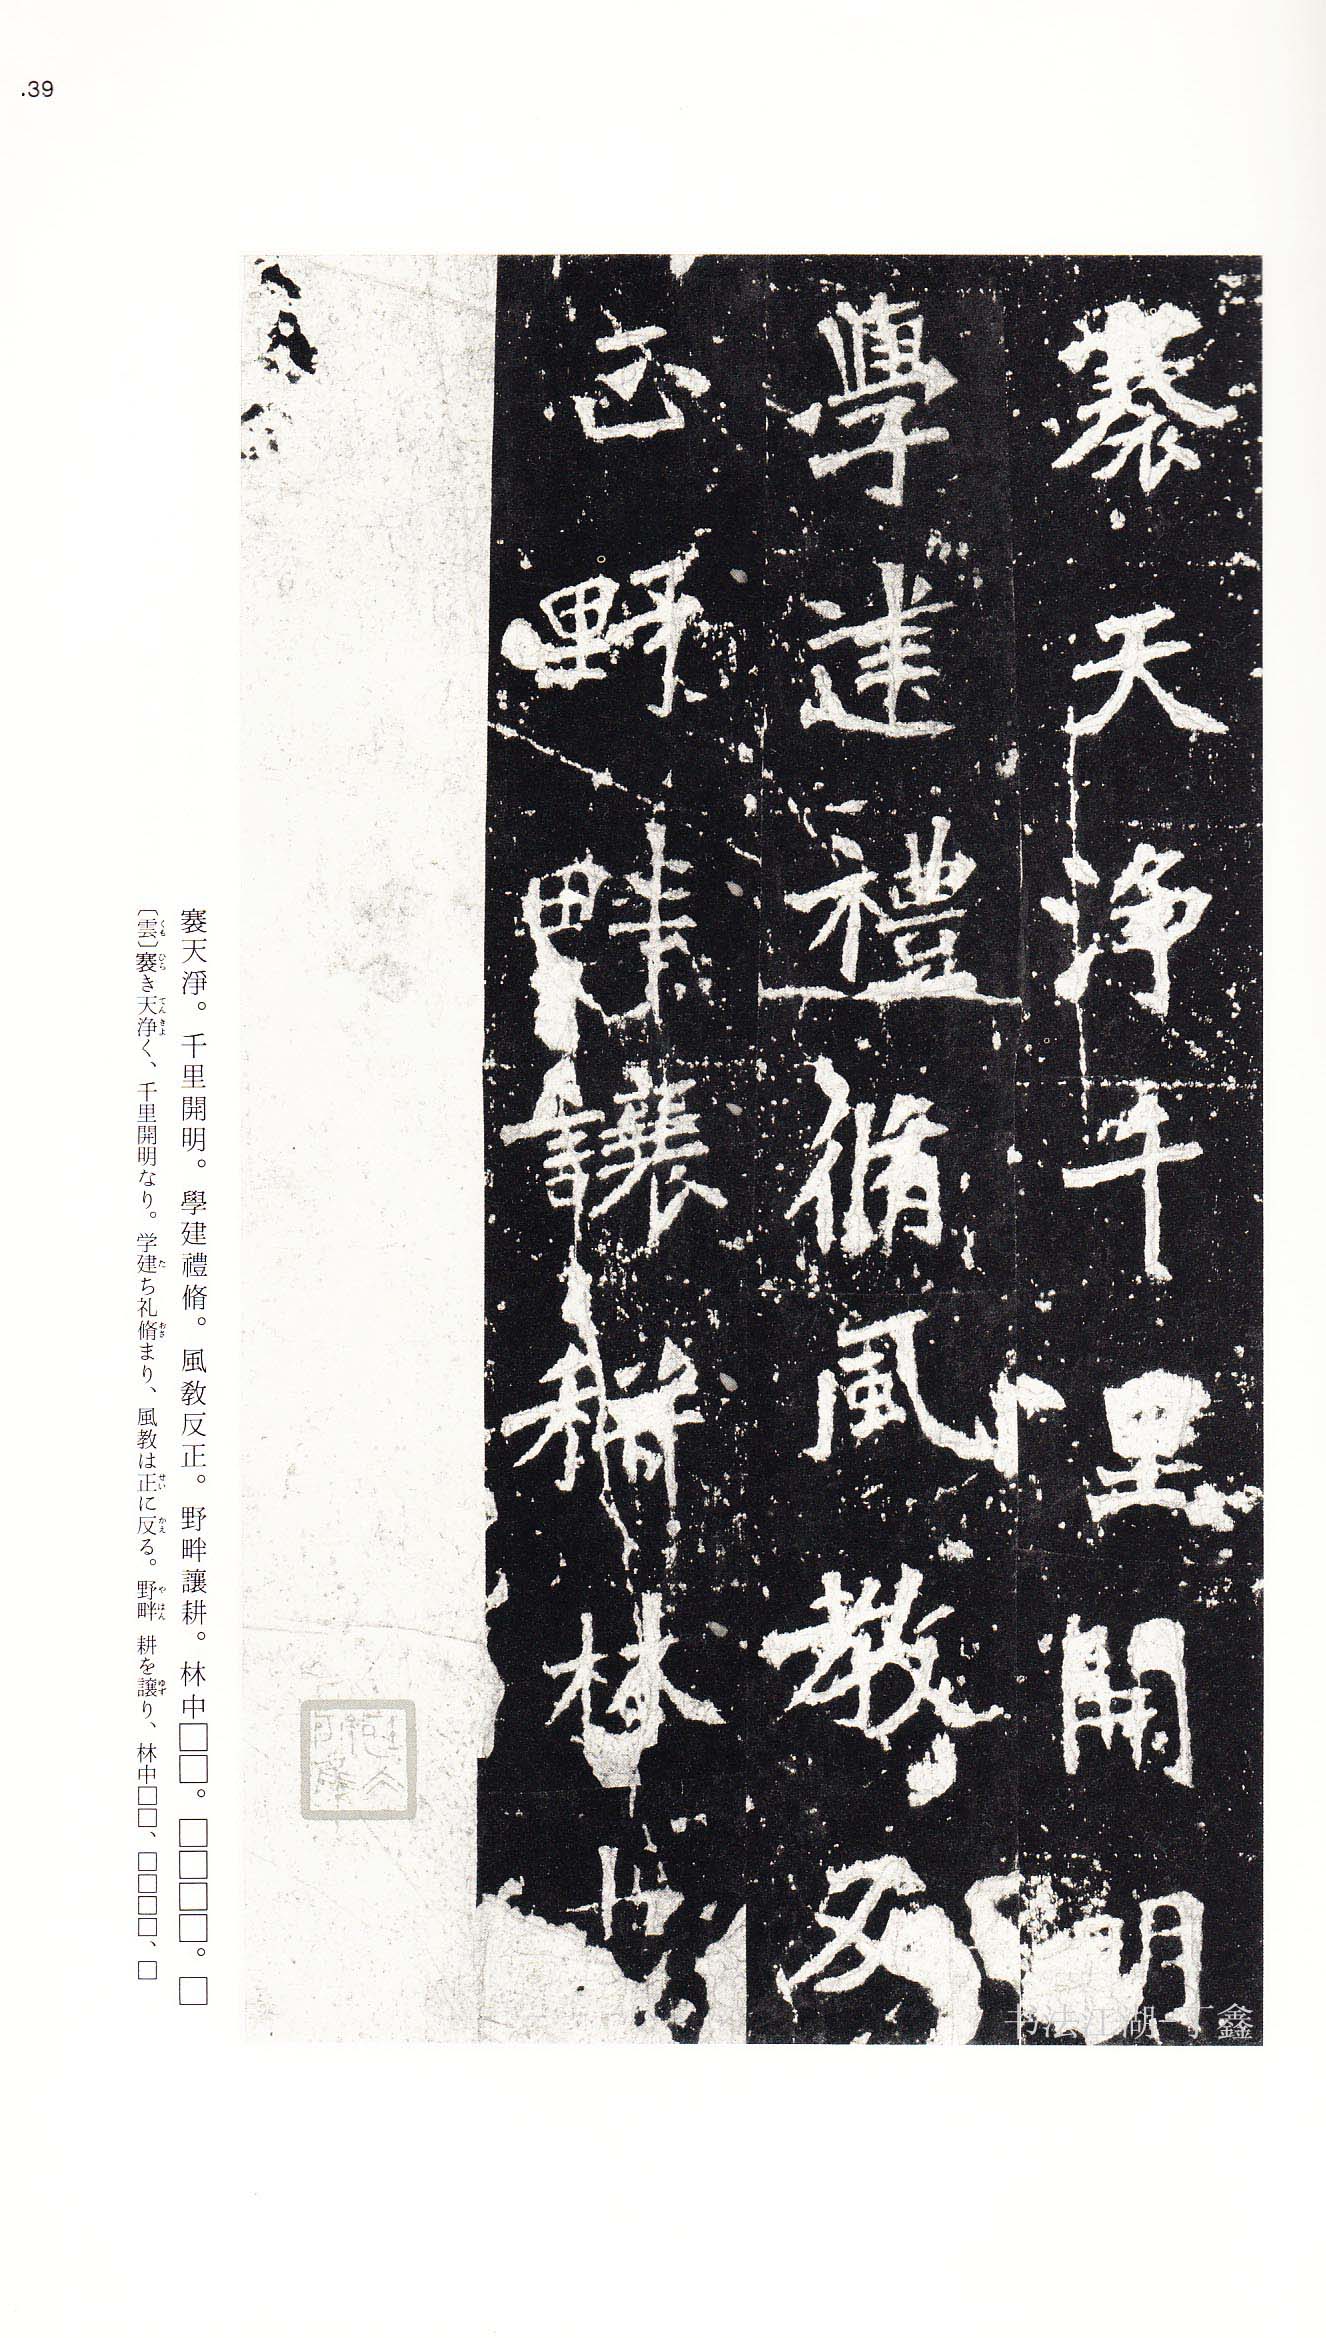 .39
褰天淨千里開明
學建禮脩風教反
正野畔讓耕林中
褰天淨。千里開明。學建禮脩。風教反正。野畔讓耕。林中□□。□□□□。□
〔雲〕褰き天浄く、千里開明なり。学建ち礼脩まり、風教は正に反る。野畔 耕を譲り、林中□□、□□□□、□
书法江湖 丁鑫